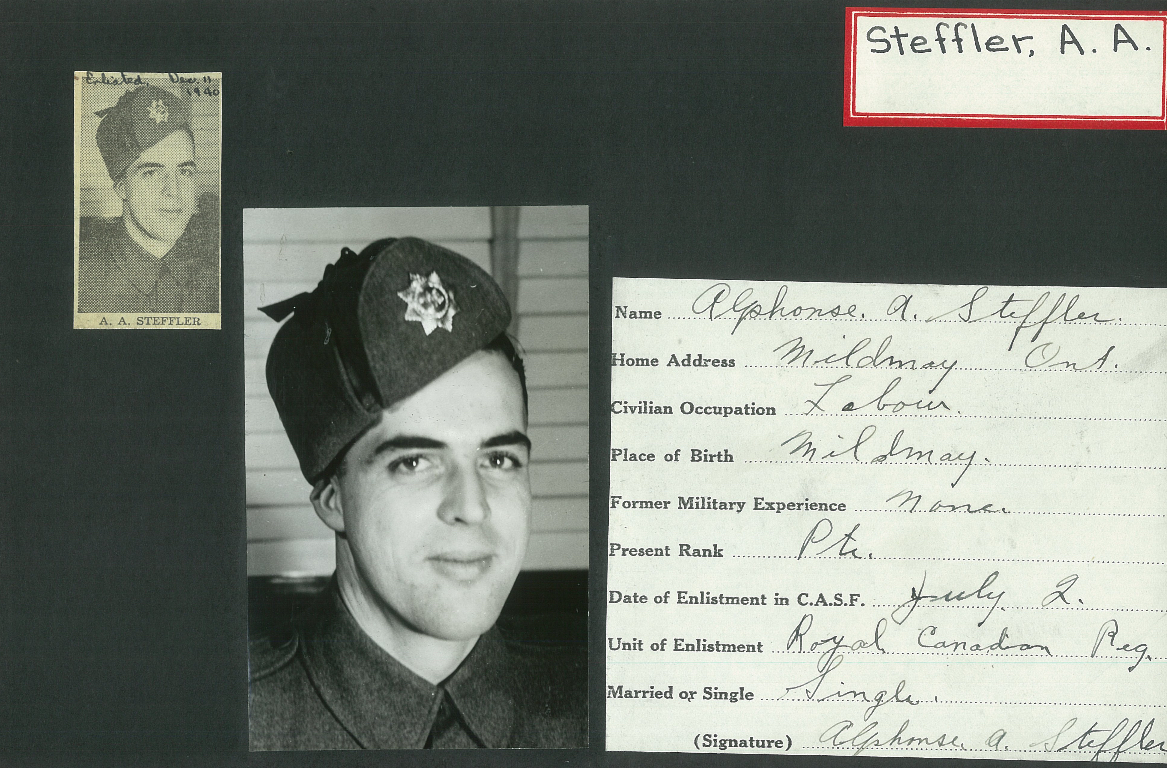 Steffler, A. A.
Enlisted. Dec. 11
1940
A. A. STEFFLER
Name Alphonse. A. Steffler.
Home Address Mildmay Ont.
Civilian Occupation Labour.
Place of Birth Mildmay.
Former Military Experience None.
Present Rank Pte.
Date of Enlistment in C.A.S.F. July 2.
Unit of Enlistment Royal Canadian Reg.
Married or Single Single.
(Signature) Alphonse. A. Steffler